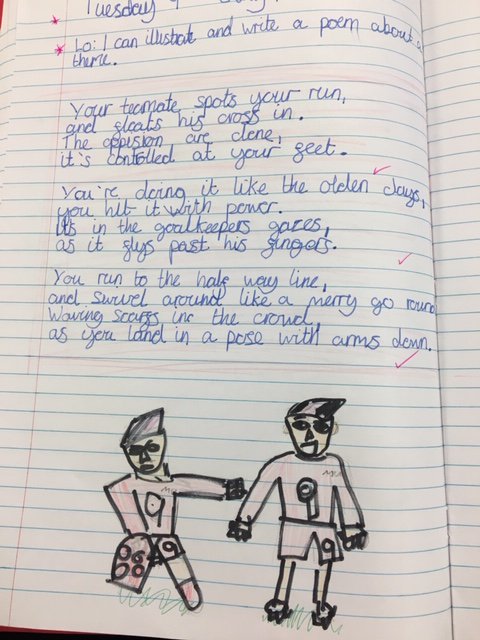 Tuesday
Lo: I can illustrate and write a poem about a
theme.
Your teamate spots your run,
and floats his cross in.
The oppision are done,
it's controlled at your feet.
You're doing it like the olden days,
you hit it with power.
Its in the goalkeepers gazes,
as it flys past his fingers.
You run to the half way line,
and swivel around like a merry go round
Waving scarfs in the crowd,
as you land in a pose with arms down.
9
9
9
9